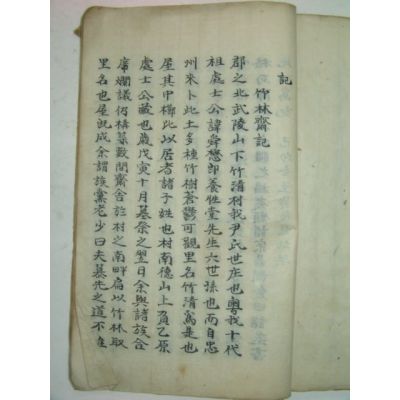 記
竹林齋記
郡之北武陵山下竹清村我尹氏世庄也粤我十代
祖處士公諱舜懋即養性堂先生六世孫也而自忠
州來卜此土多種竹樹蒼鬱可觀里名竹清蓋是也
屋其中櫛比以居者諸子姓也村南德山上負乙原
處士公藏也歲戊寅十月墓祭之翌日余與諸族合
席爛議仍構數間齋舍於村之南畔扁以竹林取
里名也屋旣成余謂族黨老少曰夫慕先之道不在